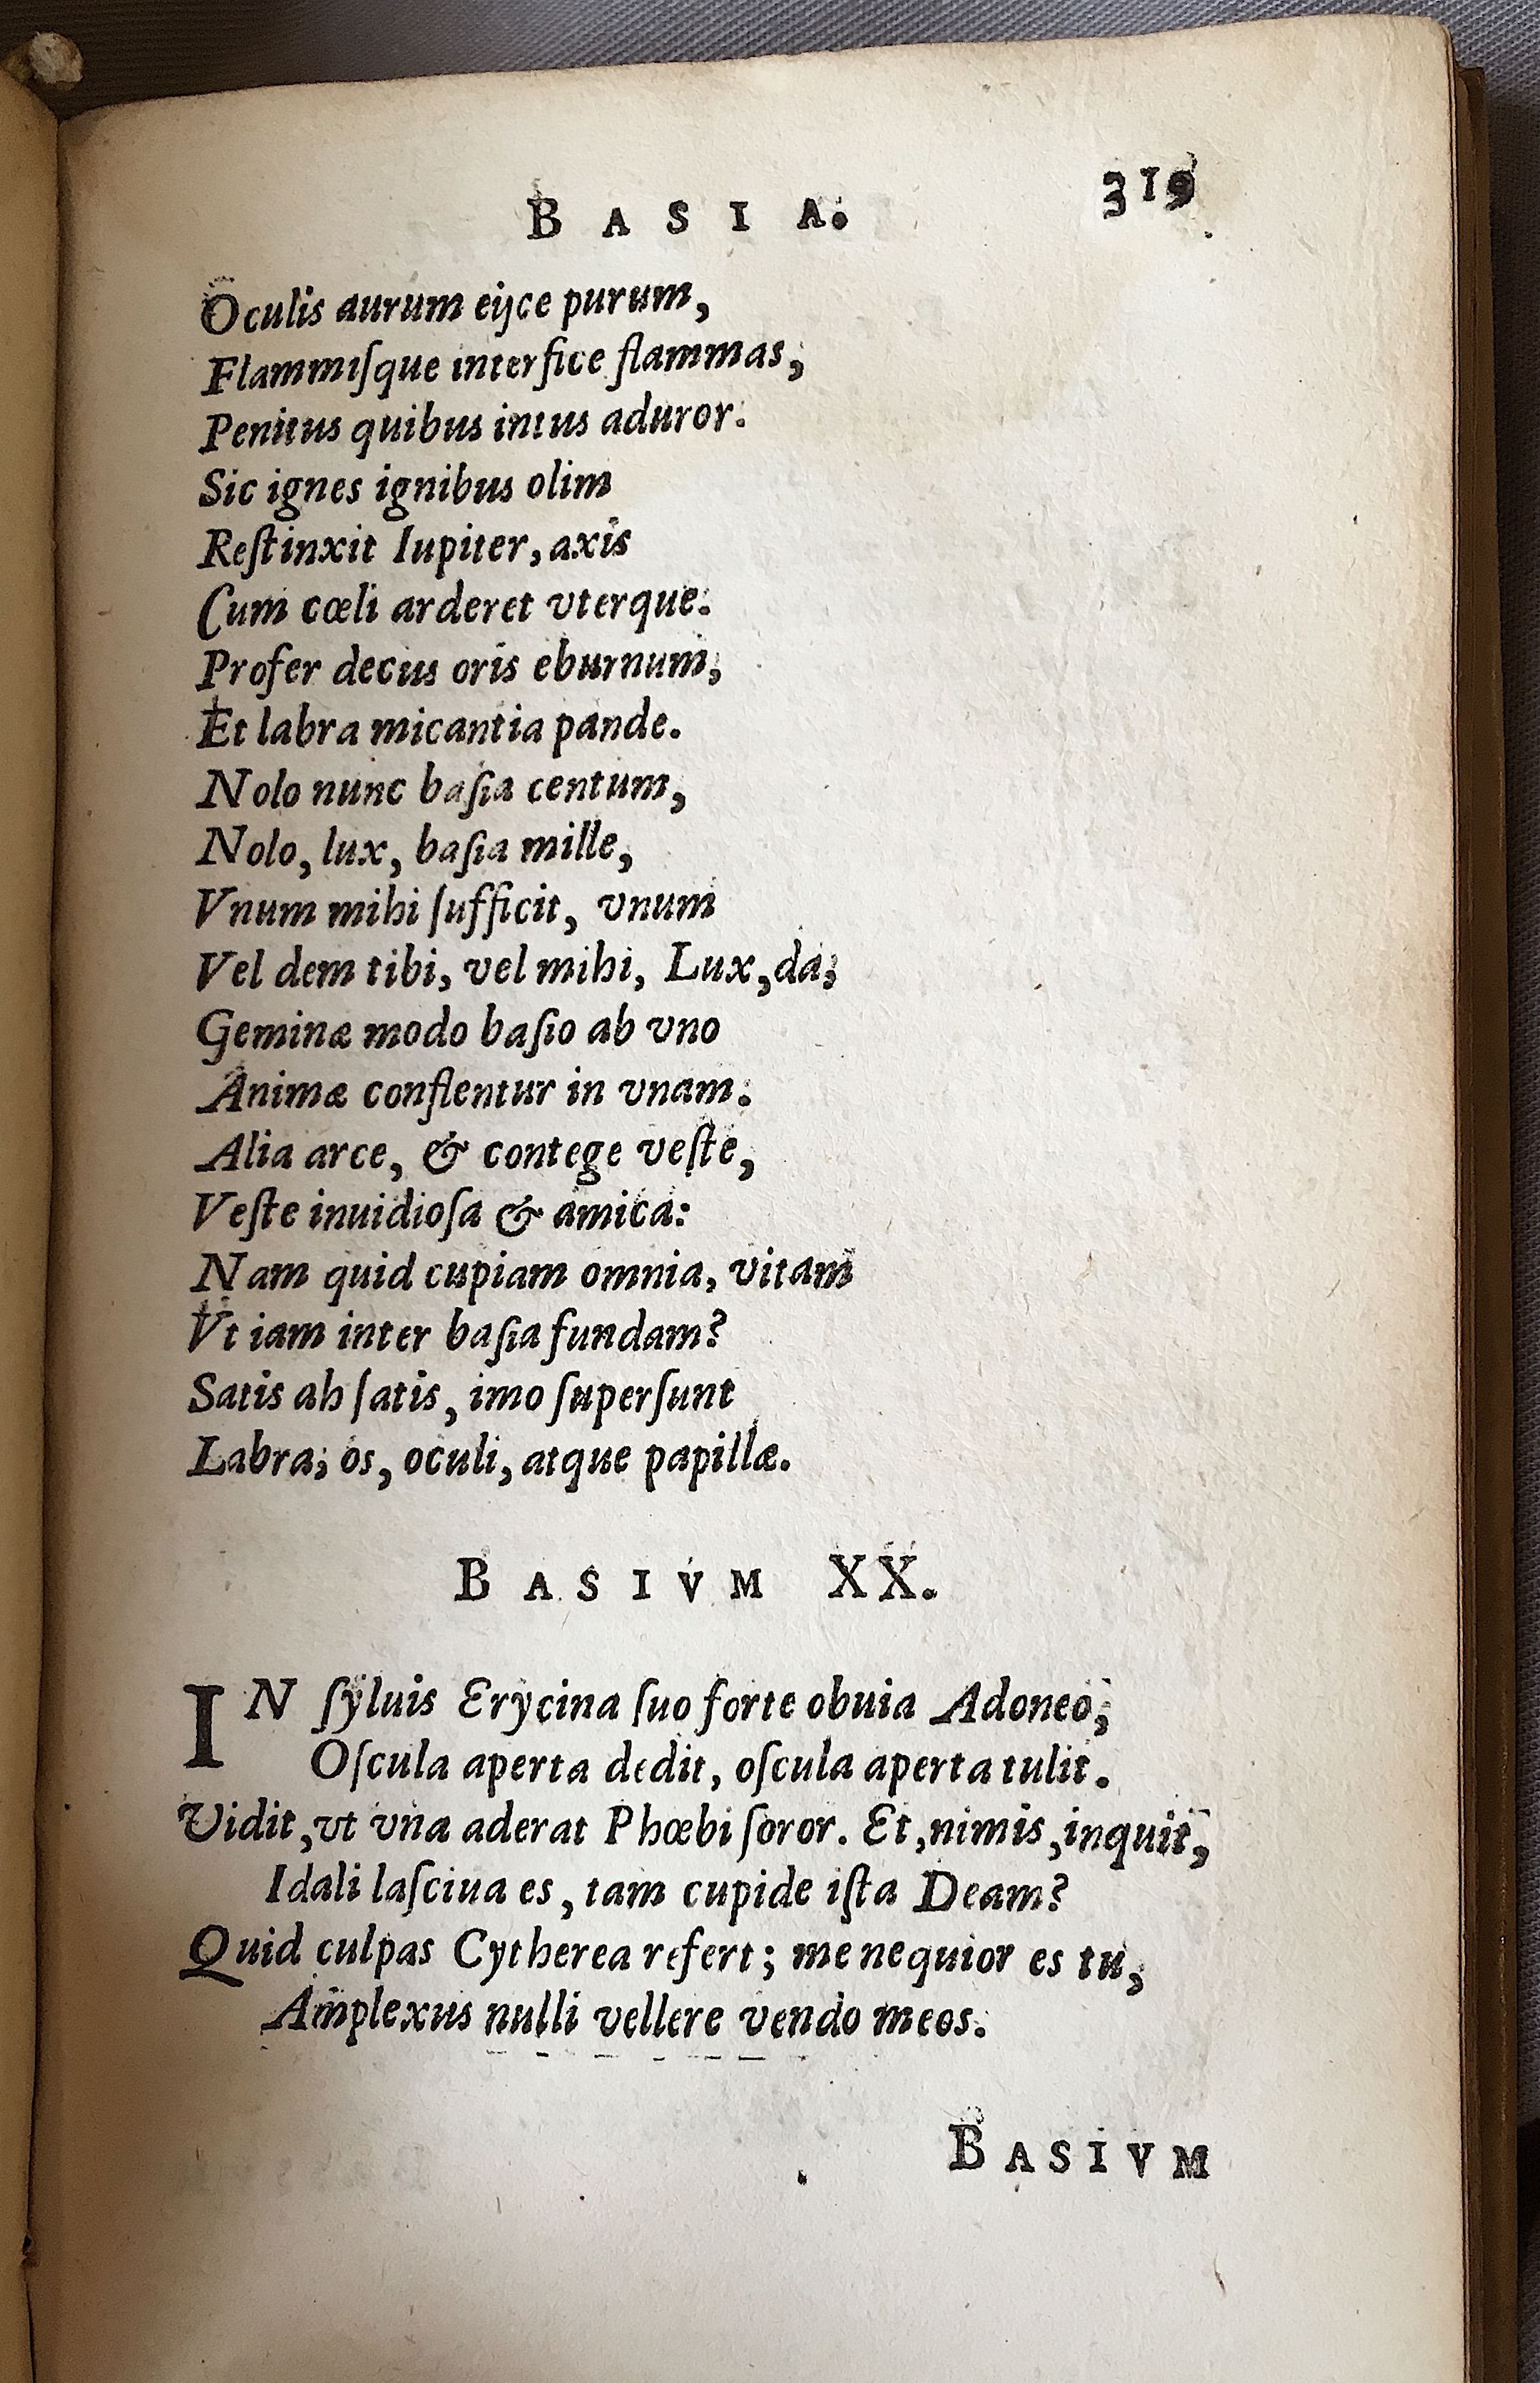 BASIA. 319
Oculis aurum eijce purum,
Flammiſque interfice flammas,
Penitus quibus intus aduror.
Sic ignes ignibus olim
Reſtinxit Iupiter, axis
Cum cœli arderet vterque.
Profer decus oris eburnum,
Et labra micantia pande.
Nolo nunc baſia centum,
Nolo, lux, baſia mille,
Vnum mihi ſufficit, vnum
Vel dem tibi, vel mihi, Lux, da;
Geminæ modo baſio ab vno
Animæ conflentur in vnam.
Alia arce, & contege veſte,
Veſte inuidioſa & amica:
Nam quid cupiam omnia, vitam
Vt iam inter baſia fundam?
Satis ah ſatis, imo ſuperſunt
Labra; os, oculi, atque papillæ.
BASIVM XX.
IN ſyluis Erycina ſuo forte obuia Adoneo,
Oſcula aperta dedit, oſcula aperta tulit.
Vidit, vt vna aderat Phœbi ſoror. Et, nimis, inquit,
Idali laſciua es, tam cupide iſta Deam?
Quid culpas Cytherea refert; me nequior es tu,
Amplexus nulli vellere vendo meos.
BASIVM